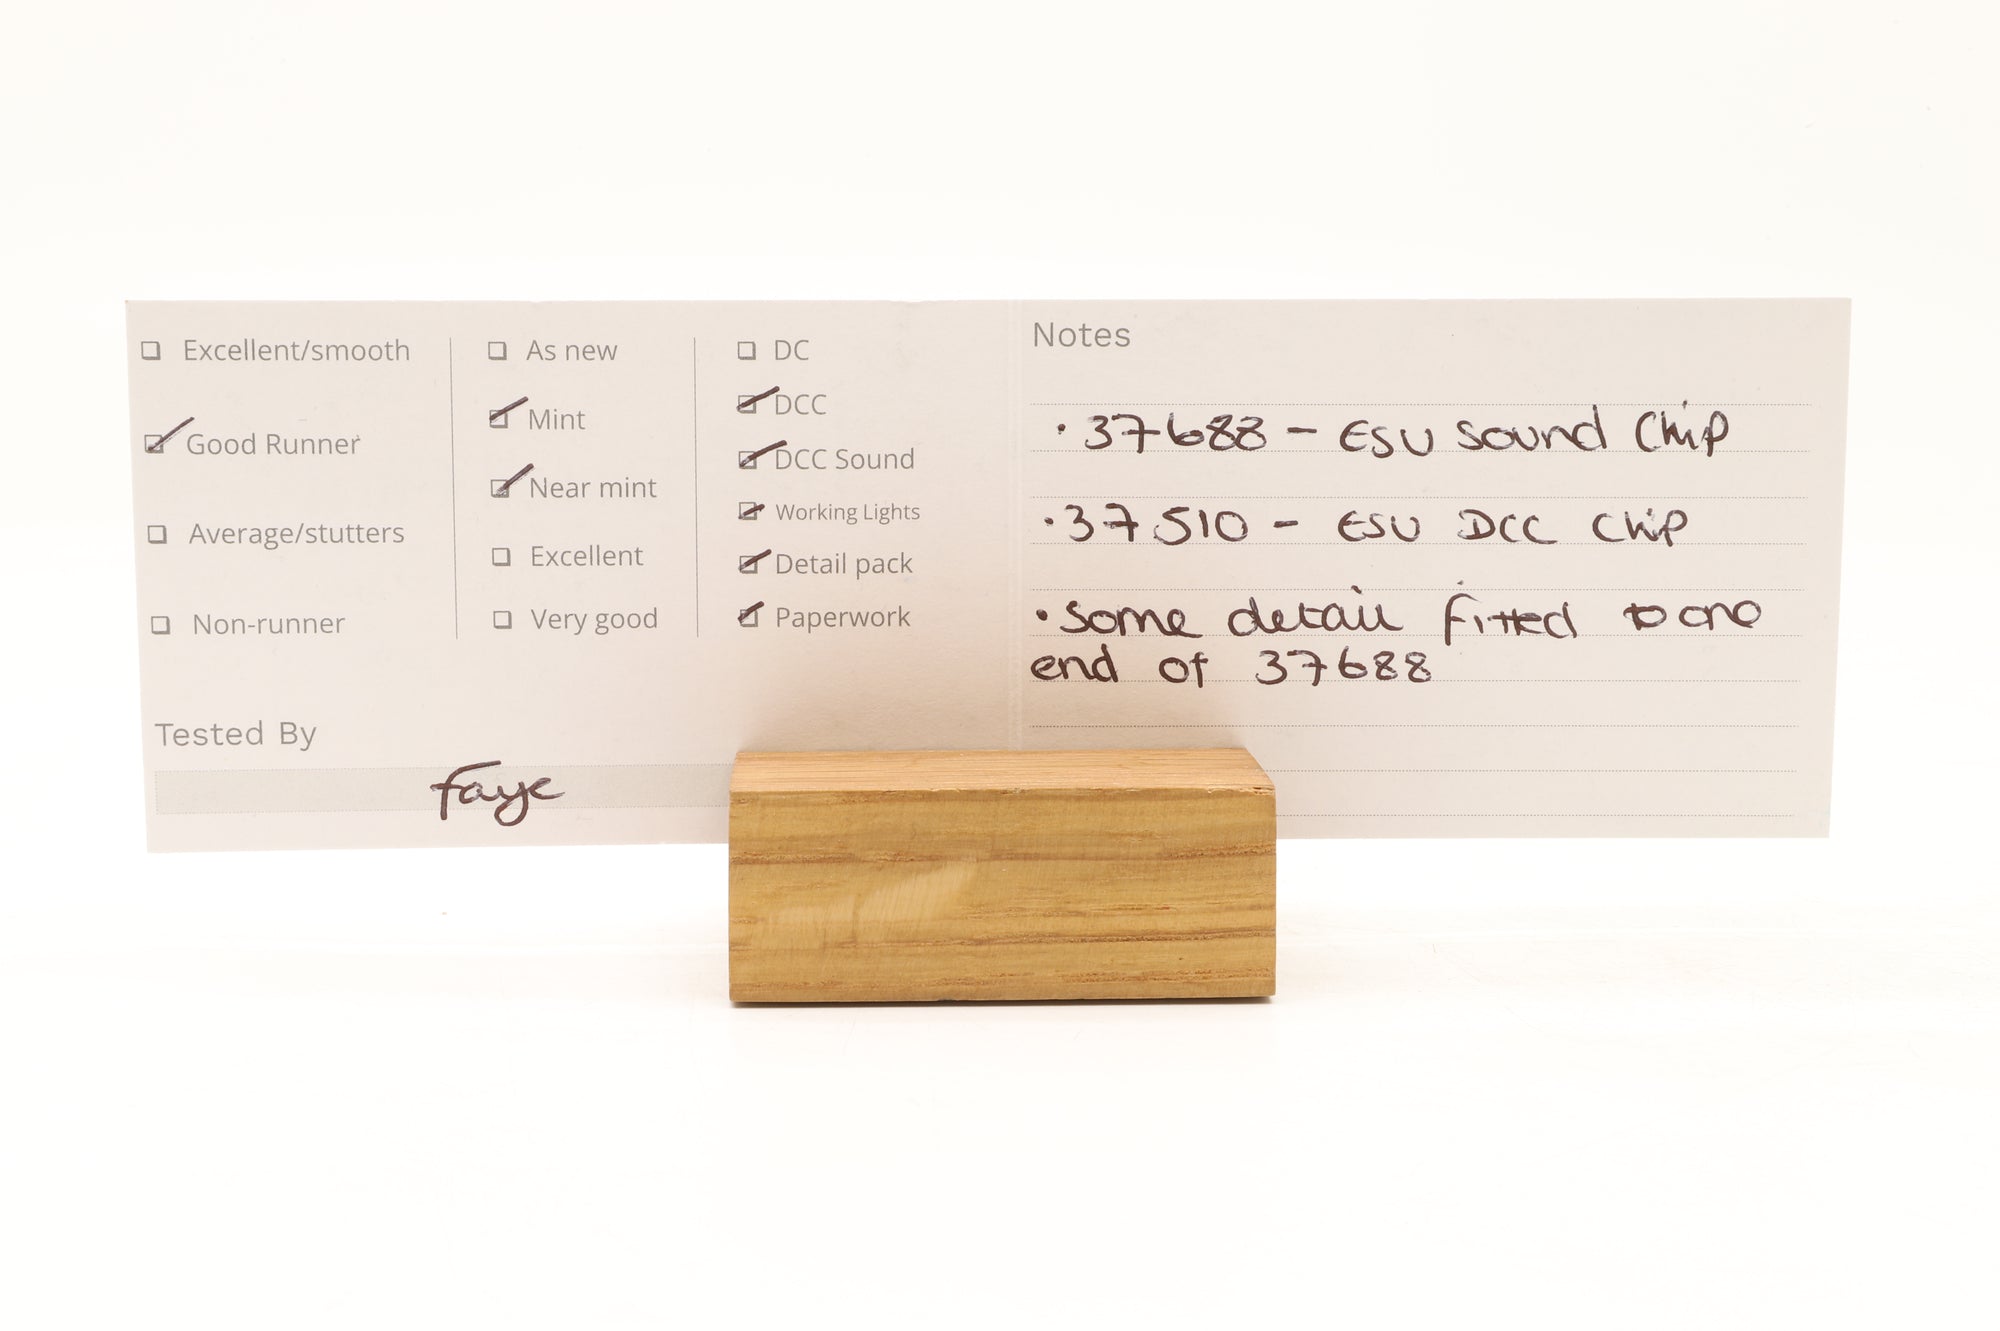 Excellent/smooth
Good Runner
Average/stutters
Non-runner
As new
Mint
Near mint
Excellent
Very good
DC
DCC
DCC Sound
Working Lights
Detail pack
Paperwork
Tested By
Faye
Notes
• 37688 - ESU Sound Chip
• 37510 - ESU DCC Chip
• Some detail fitted to one
end of 37688